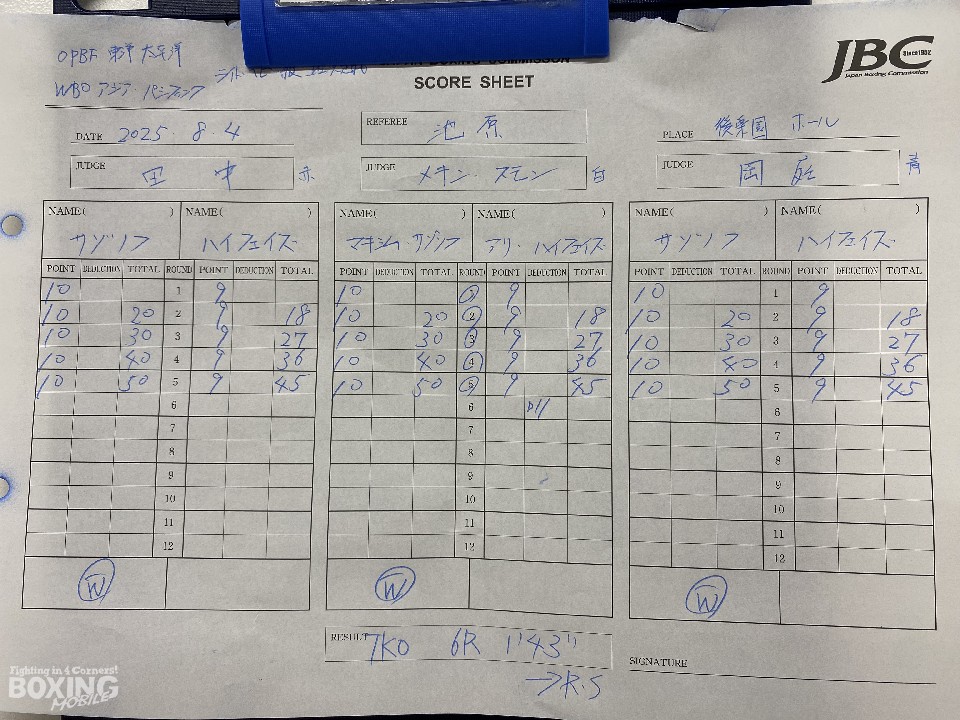 OPBF 東洋太平洋
WBO アジア・パシフィック
SCORE SHEET
JBC Since1952
Japan Boxing Commission
DATE 2025・8・4
REFEREE 池原
PLACE 後楽園ホール
JUDGE 田中 赤
JUDGE メキン・スモン 白
JUDGE 岡庭 青
NAME( ) NAME( ) NAME( ) NAME( ) NAME( ) NAME( )
サゾノフ ハイフェイズ マキシム・サゾノフ アリ・ハイフェイズ サゾノフ ハイフェイズ
POINT DEDUCTION TOTAL ROUND POINT DEDUCTION TOTAL POINT DEDUCTION TOTAL ROUND POINT DEDUCTION TOTAL POINT DEDUCTION TOTAL ROUND POINT DEDUCTION TOTAL
10 1 9 10 1 9 10 1 9
10 20 2 9 18 10 20 2 9 18 10 20 2 9 18
10 30 3 9 27 10 30 3 9 27 10 30 3 9 27
10 40 4 9 36 10 40 4 9 36 10 40 4 9 36
10 50 5 9 45 10 50 5 9 45 10 50 5 9 45
6 6 6
7 7 7
8 8 8
9 9 9
10 10 10
11 11 11
12 12 12
W W W
RESULT TKO 6R 1'43"
→R.S
SIGNATURE
Fighting in 4 Corners!
BOXING
MOBILE